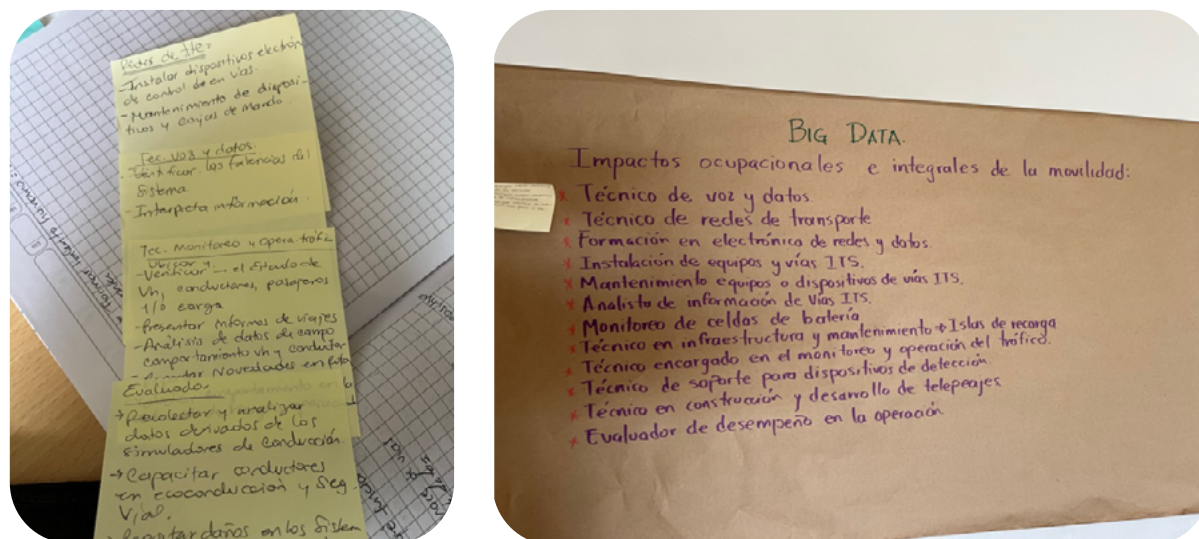 Redes de tte:
- Instalar dispositivos electrón
de control en vías.
- Mantenimiento de disposi-
tivos y cajas de mando.
Tec. voz y datos.
- Identificar las falencias del
Sistema
- Interpreta información.
Tec. Monitoreo y opera tráfic
Ubicar y
- Verificar el Estado de
Vh, conductores, pasajeros
y/o carga
- Presentar informes de viajes
- Análisis de datos de campo
comportamiento vh y conductor
Novedades en
Evaluador
→ Recolectar y analizar
datos derivados de los
simuladores de conducción.
→ Capacitar conductores
en ecoconducción y Seg.
Vial.
daños en los Sistem
BIG DATA.
Impactos ocupacionales e integrales de la movilidad:
x Técnico de voz y datos
x Técnico de redes de transporte
x Formación en electrónica de redes y datos.
x Instalación de equipos y vías ITS.
x Mantenimiento equipos o dispositivos de vías ITS.
x Analista de información de Vías ITS.
x Monitoreo de celdas de batería
x Técnico en infraestructura y mantenimiento → Islas de recarga
x Técnico encargado en el monitoreo y operación del tráfico.
x Técnico de soporte para dispositivos de detección.
x Técnico en construcción y desarrollo de telepeajes
x Evaluador de desempeño en la operación